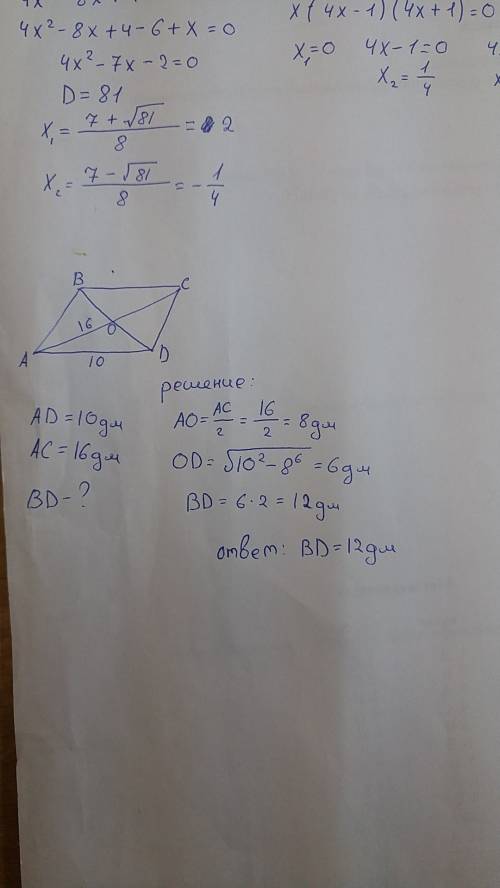 4x² - 8x + 4 - 6 + x = 0
4x² - 7x - 2 = 0
D = 81
x₁ = (7 + √81)/8 = 2
x₂ = (7 - √81)/8 = -1/4
x(4x-1)(4x+1)=0
x₁=0 4x-1=0
x₂ = 1/4
B C
16 O
A 10 D
решение:
AD = 10дм
AC = 16дм
BD - ?
AO = AC/2 = 16/2 = 8дм
OD = √10² - 8⁶ = 6дм
BD = 6·2 = 12дм
ответ: BD = 12дм